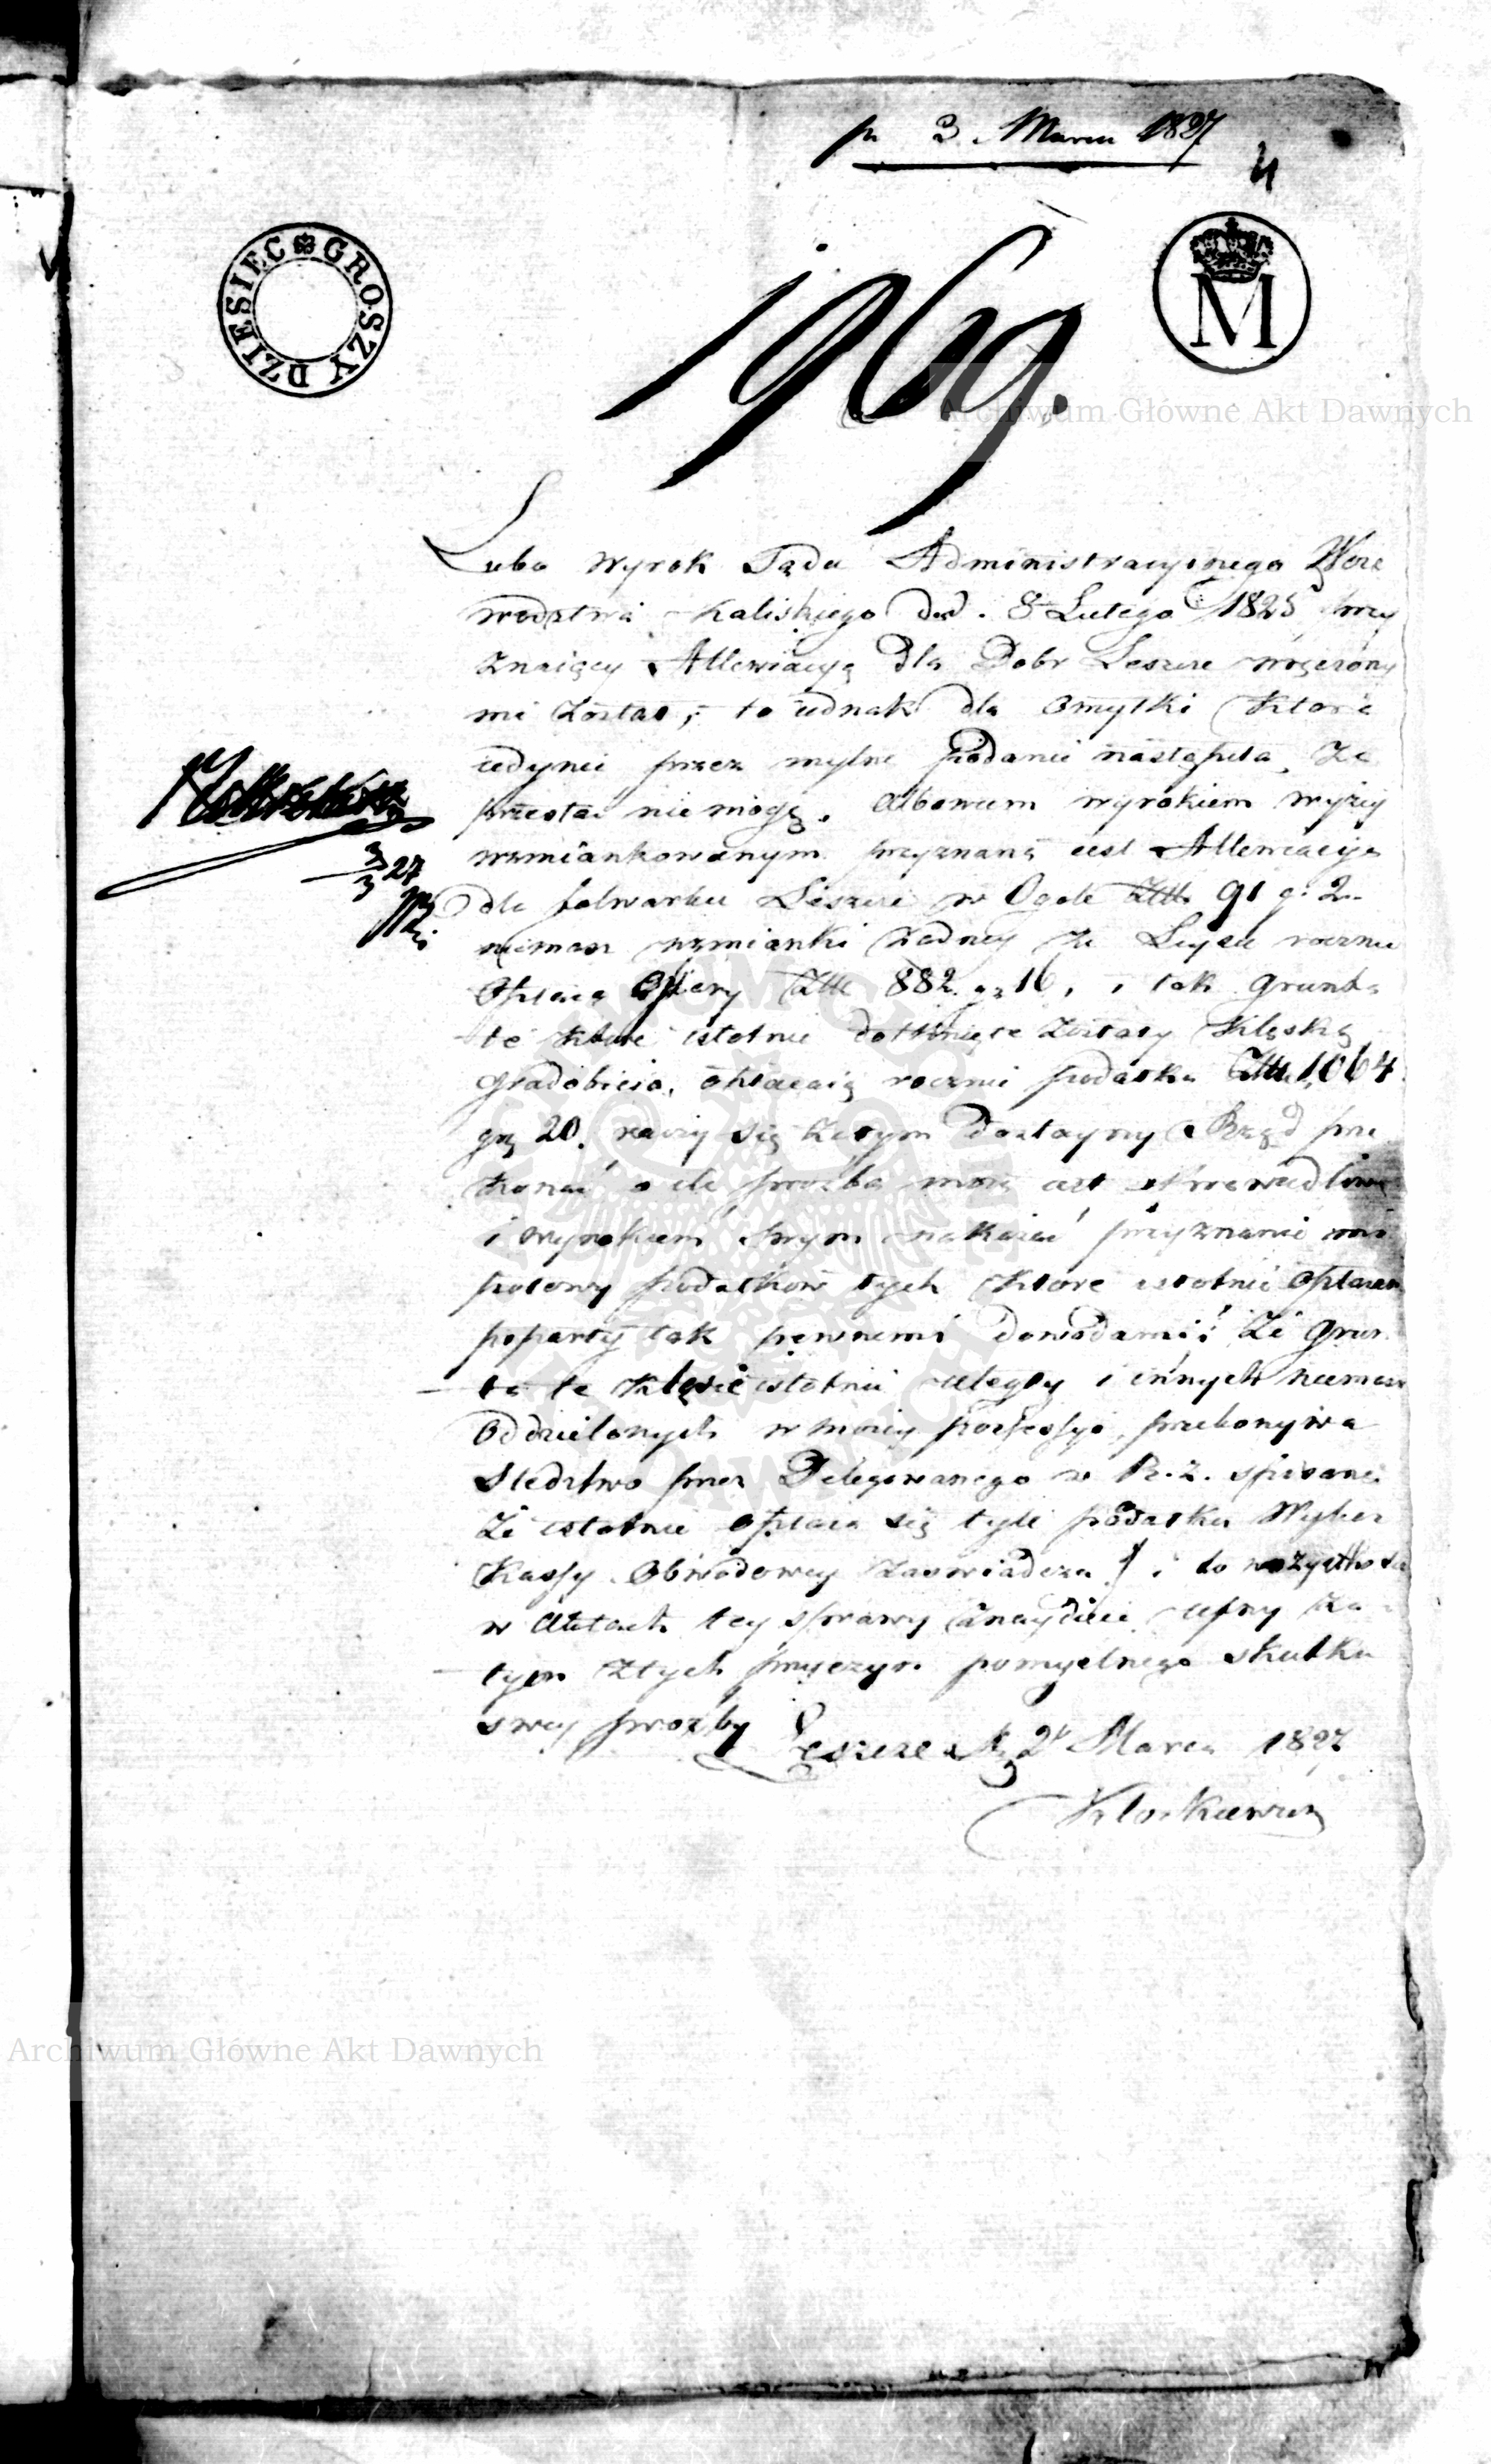 pr 3. Marca 1827
4
DZIESIĘC GROSZY
M
1969.
Archiwum Główne Akt Dawnych
Lubo wyrok Sądu Administracyinego Woie
wodztwa Kaliskiego dd. 8 Lutego 1825 przy
znaiący Allewiacyą dla Dobr Leszcze wręczony
mi został, to iednak dla omyłki ktora
iedynie przez mylne podanie nastąpiła, za
przestać nie mogę. Albowiem wyrokiem wyżey
wzmiankowanym przyznaną iest Allewiacya
dla folwarku Leszcze w Ogole Złł 91 g: 2.
niemasz wzmianki żadney że rocznie
Opłaca Ofiary Złł 882 gr 16, i tak grunta
te ktore istotnie dotknięte zostały klęską
gradobicia, opłacaią rocznie podatku Złł 1064
gr 20. raczy się zatym Dostoyny Rząd prze
konać o ile prozba moia iest sprawiedliwa
i wyrokiem swym nakazać przyznanie mi
połowy podatkow tych ktore istotnie opłacam
poparty tak pewnemi dowodami! Że grun
ta te klęsce istotnie uległy i innych niemasz
Oddzielonych w moiey possessyi, przekonywa
Sledztwo przez Delegowanego w R. z. spisane
Że istotnie opłaca się tyle podatku Wyber
Kassy Obwodowey zaswiadcza! i to wszystko
w Aktach tey sprawy znaydzie, ufny za
tym z tych przyczyn pomyslnego skutku
swey prozby
Leszcze d. 2 Marca 1827
Kłoskiewicz
3/3 27
Archiwum Główne Akt Dawnych